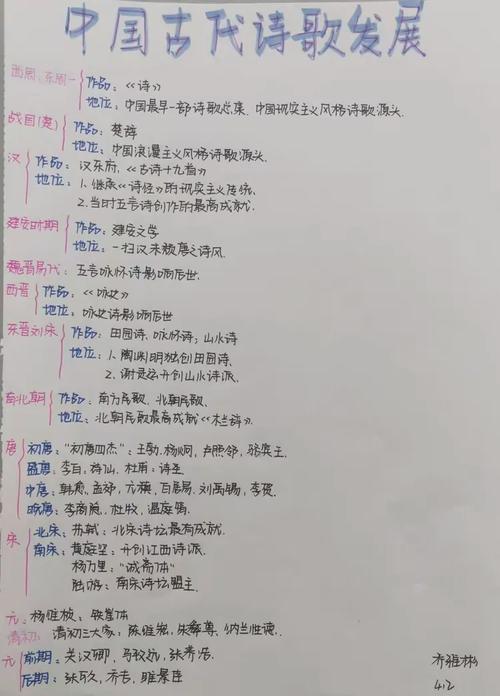 中国古代诗歌发展
西周、东周 作品:《诗》
地位:中国最早一部诗歌总集、中国现实主义风格诗歌源头
战国(楚) 作品:楚辞
地位:中国浪漫主义风格诗歌源头
汉 作品:汉乐府,《古诗十九首》
地位:1.继承《诗经》的现实主义传统.
2.当时五言诗创作的最高成就.
建安时期 作品:建安文学
地位:一扫汉末颓唐之诗风
魏晋易代:五言咏怀诗影响后世.
西晋 作品:《咏史》
地位:咏史诗影响后世
东晋刘宋 作品:田园诗、咏怀诗;山水诗
地位:1.陶渊明独创田园诗.
2.谢灵运开创山水诗派.
南北朝 作品:南方民歌、北朝民歌
地位:北朝民歌最高成就《木兰辞》
唐 初唐:"初唐四杰":王勃、杨炯、卢照邻、骆宾王.
盛唐:李白:诗仙、杜甫:诗圣
中唐:韩愈、孟郊、元稹、白居易、刘禹锡、李贺.
晚唐:李商隐、杜牧、温庭筠.
宋 北宋:苏轼:北宋诗坛最高成就.
南宋:黄庭坚:开创江西诗派.
杨万里:"诚斋体"
陆游:南宋诗坛盟主.
元:杨维桢:铁崖体
清初:清初三大家:陈维崧、朱彝尊、纳兰性德.
元 前期:关汉卿、马致远、张养浩.
后期:张可久、乔吉、睢景臣
乔雅彬
4.2